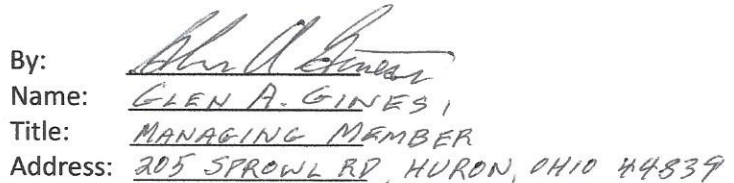 By: Glen A. Ginesi
Name: GLEN A. GINESI
Title: MANAGING MEMBER
Address: 205 SPROWL RD, HURON, OHIO 44839